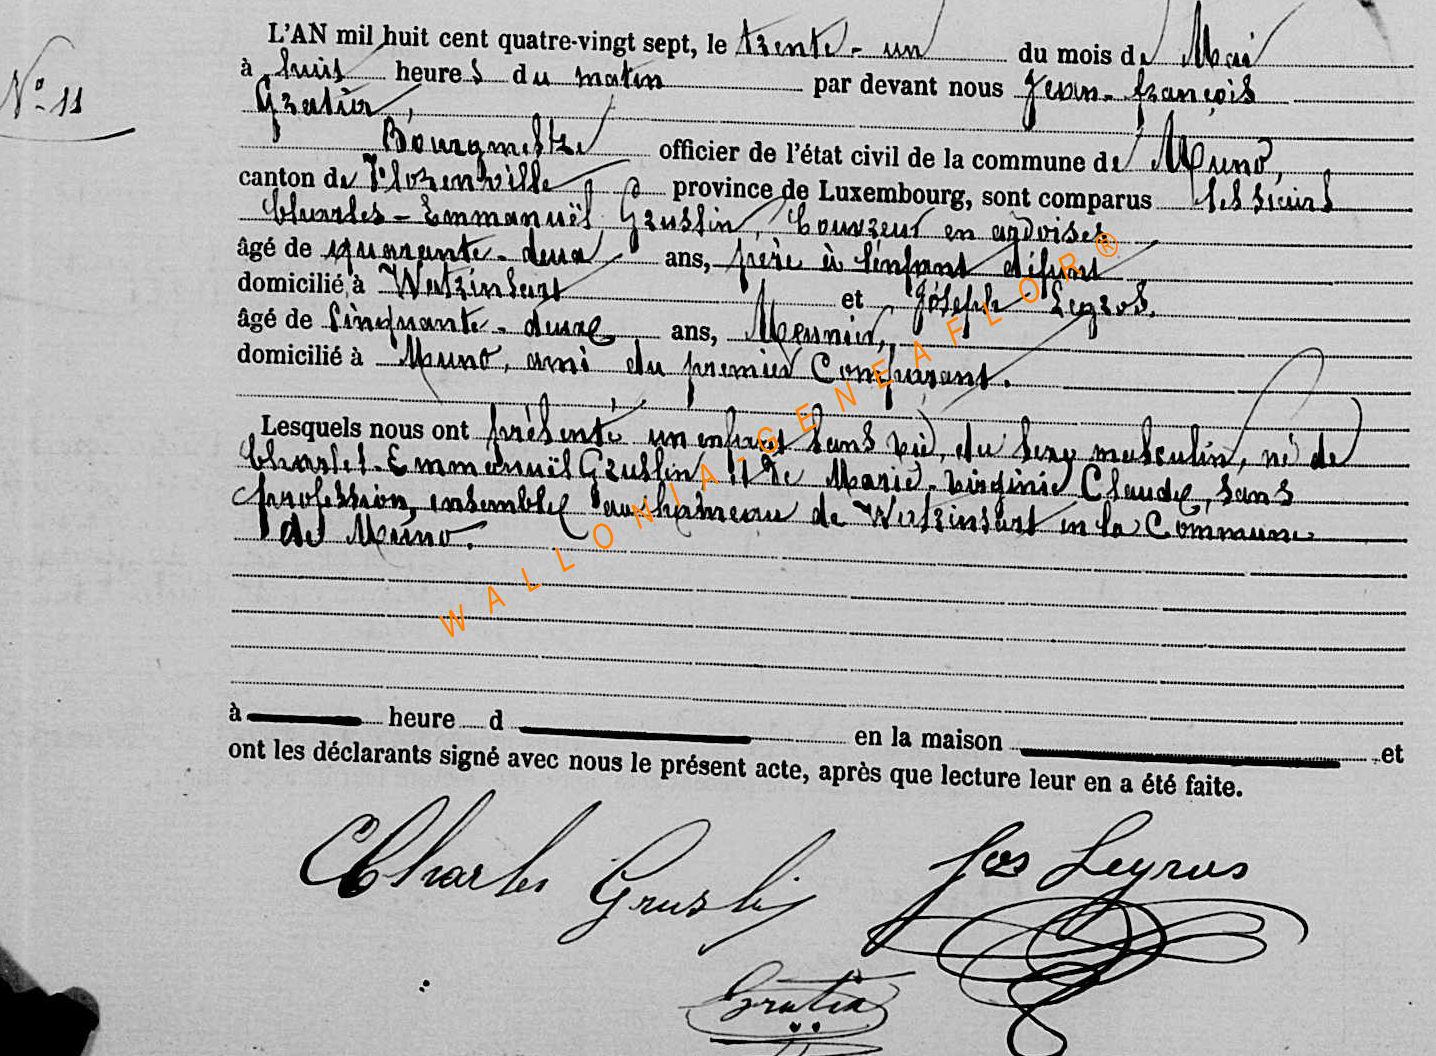 N° 11
L'AN mil huit cent quatre-vingt sept, le trente-un du mois de Mai
à huit heures du matin par devant nous Jean-françois
Gratia,
Bourgmestre officier de l'état civil de la commune de Muno,
canton de Florenville province de Luxembourg, sont comparus les sieurs
Charles-Emmanuël Gruslin, Couvreur en ardoises
âgé de quarante-deux ans, père à l'enfant défunt
domicilié à Watrinsart et Joseph Legros,
âgé de Cinquante-deux ans, Meunier,
domicilié à Muno, ami du premier Comparant.
Lesquels nous ont présenté un enfant sans vie, du sexe masculin, né de
Charles-Emmanuël Gruslin et de Marie-Virginie Claude, sans
profession, ensemble au hameau de Watrinsart en la Commune
de Muno.
à heure d en la maison et
ont les déclarants signé avec nous le présent acte, après que lecture leur en a été faite.
Charles Gruslin Jos Legros
Gratia
WALLONIA-GENEAFLOR®